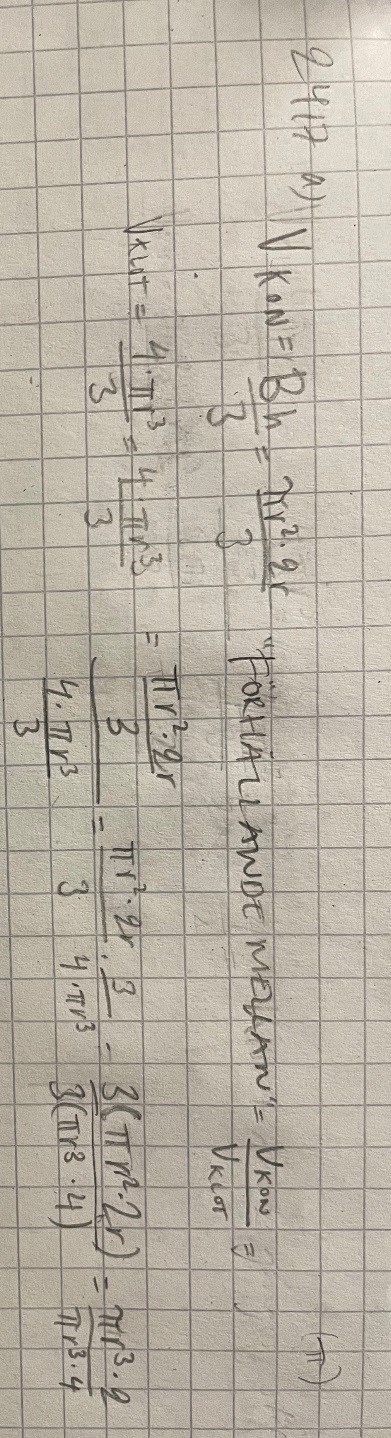 2417 a) V KON = Bh/3 = πr²·2r/3 "FÖRHÅLLANDE MELLAN" = VKON/VKLOT = (π)
VKLOT = 4·πr³/3 = 4·πr³/3
= (πr²·2r/3)/(4·πr³/3) = πr²·2r/3 · 3/4·πr³ = 3(πr²·2r)/3(πr³·4) = πr³·2/πr³·4